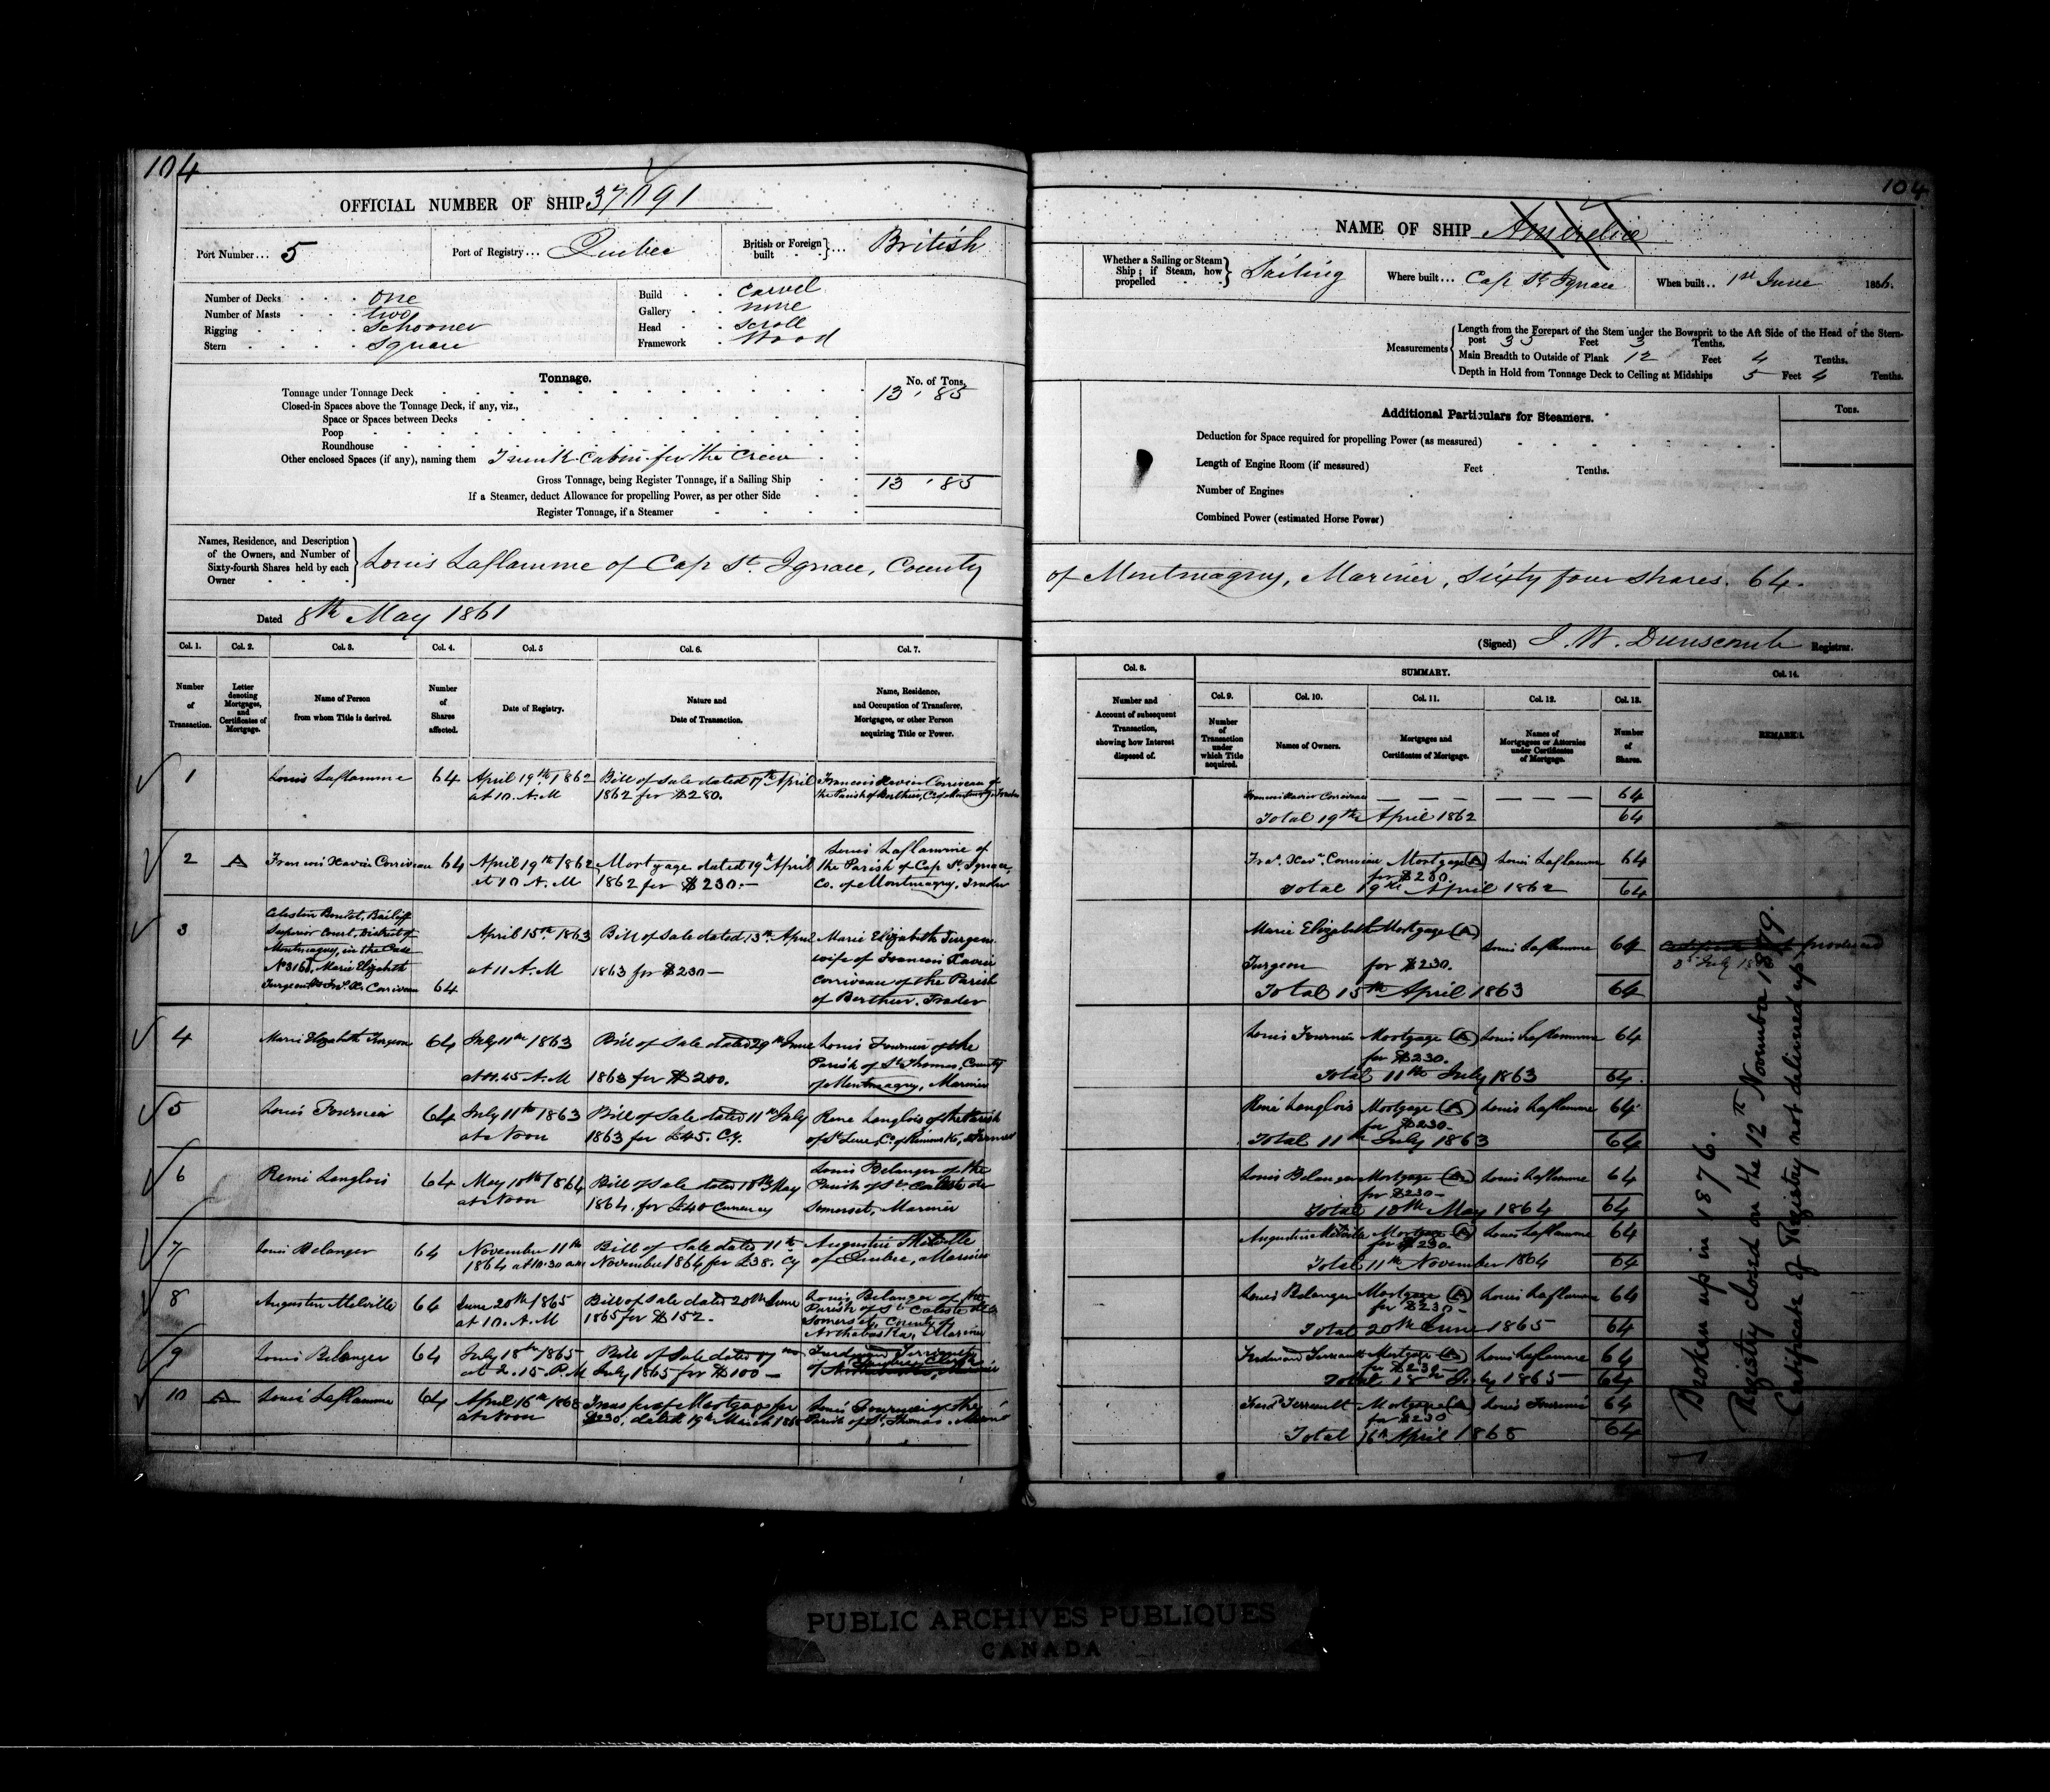 104
OFFICIAL NUMBER OF SHIP 37191
Port Number... 5
Port of Registry... Quebec
British or Foreign built ... British
Number of Decks one
Number of Masts two
Rigging Schooner
Stern Square
Build Carvel
Gallery none
Head Scroll
Framework Wood
Tonnage.
No. of Tons.
Tonnage under Tonnage Deck 13.85
Closed-in Spaces above the Tonnage Deck, if any, viz.,
Space or Spaces between Decks
Poop
Roundhouse
Other enclosed Spaces (if any), naming them Trunk Cabin for the Crew
Gross Tonnage, being Register Tonnage, if a Sailing Ship 13.85
If a Steamer, deduct Allowance for propelling Power, as per other Side
Register Tonnage, if a Steamer
Names, Residence, and Description
of the Owners, and Number of
Sixty-fourth Shares held by each
Owner
Louis Laflamme of Cap St. Ignace, County
Dated 8th May 1861
Col. 1. Col. 2. Col. 3. Col. 4. Col. 5 Col. 6. Col. 7.
Number of Transaction.
Letter denoting Mortgages, and Certificates of Mortgage.
Name of Person from whom Title is derived.
Number of Shares affected.
Date of Registry.
Nature and Date of Transaction.
Name, Residence, and Occupation of Transferee, Mortgagee, or other Person acquiring Title or Power.
1 Louis Laflamme 64 April 19th 1862 Bill of Sale dated 17th April Francois Xavier Corriveau of
at 10. A.M 1862 for $280. the Parish of Berthier, Co of Montmagny, Trader
2 A Francois Xavier Corriveau 64 April 19th 1862 Mortgage dated 19th April Louis Laflamme of
at 10 A.M 1862 for $230.— the Parish of Cap St. Ignace,
Co. of Montmagny, Trader
3 Celestin Boudet, Bailiff
Superior Court, District of
Montmagny, in the Case
Marie Elizabeth
Turgeon Corriveau 64
April 15th 1863 Bill of Sale dated 13th April Marie Elizabeth Turgeon
at 11 A.M 1863 for $230— wife of Francois Xavier
Corriveau of the Parish
of Berthier, Trader
4 Marie Elizabeth Turgeon 64 July 11th 1863 Bill of Sale dated 29th June Louis Fournier of the
at 11.45 A.M 1863 for $200. Parish of St Thomas, County
of Montmagny, Marinier
5 Louis Fournier 64 July 11th 1863 Bill of Sale dated 11th July René Langlois of the Parish
at Noon 1863 for £45. Cy. of St Luce, Co. of Rimouski, Farmer
6 Remi Langlois 64 May 10th 1864 Bill of Sale dated 10th May Louis Belanger of the
at Noon 1864, for £40 Currency Parish of St Caliste de
Somerset, Marinier
7 Louis Belanger 64 November 11th Bill of Sale dated 11th Augustin Melville
1864 at 10.30 a.m November 1864 for £38. Cy of Quebec, Marinier
8 Augustin Melville 64 June 20th 1865 Bill of Sale dated 20th June Louis Belanger of the
at 10. A.M 1865 for $152. Parish of St Caliste de
Somerset, County of
Arthabaska, Marinier
9 Louis Belanger 64 July 18th 1865 Bill of Sale dated 17 Ferdinand Terreault
at 2.15. P.M July 1865 for $100— of Quebec, Clerk
10 A Louis Laflamme 64 April 16th 1868 Transfer of Mortgage for Louis Fournier of the
at Noon $230, dated 19th March 1868 Parish of St Thomas, Marinier
104
NAME OF SHIP Ameline
Whether a Sailing or Steam
Ship; if Steam, how
propelled
Sailing
Where built... Cap St Ignace
When built.. 1st June 1856.
Measurements
Length from the Forepart of the Stem under the Bowsprit to the Aft Side of the Head of the Stern-
post 33 Feet 3 Tenths.
Main Breadth to Outside of Plank 12 Feet 4 Tenths.
Depth in Hold from Tonnage Deck to Ceiling at Midships 5 Feet 4 Tenths.
Additional Particulars for Steamers.
Tons.
Deduction for Space required for propelling Power (as measured)
Length of Engine Room (if measured) Feet Tenths.
Number of Engines
Combined Power (estimated Horse Power)
of Montmagny, Marinier, Sixty four shares. 64.
(Signed) J. W. Dunscomb Registrar.
Col. 8. SUMMARY. Col. 14.
Col. 9. Col. 10. Col. 11. Col. 12. Col. 13.
Number and Account of subsequent Transaction, showing how Interest disposed of.
Number of Transaction under which Title acquired.
Names of Owners.
Mortgages and Certificates of Mortgage.
Names of Mortgagees or Attornies under Certificates of Mortgage.
Number of Shares.
REMARKS.
Francois Xavier Corriveau — — — — — — 64
Total 19th April 1862 64
Fra. Xav. Corriveau Mortgage (A) Louis Laflamme 64
for $230.
Total 19th April 1862 64
Marie Elizabeth Mortgage (A)
Turgeon for $230. Louis Laflamme 64
Total 15th April 1863 64
Louis Fournier Mortgage (A) Louis Laflamme 64
for $230.
Total 11th July 1863 64.
René Langlois Mortgage (A) Louis Laflamme 64
for $230—
Total 11th July 1863 64
Louis Belanger Mortgage (A) Louis Laflamme 64
for $230—
Total 10th May 1864 64
Augustin Melville Mortgage (A) Louis Laflamme 64
for $230.
Total 11th November 1864 64
Louis Belanger Mortgage (A) Louis Laflamme 64
for $230—
Total 20th June 1865 64
Ferdinand Terreault Mortgage (A) Louis Laflamme 64
for $230—
Total 18th July 1865 64
Ferd Terreault Mortgage (A) Louis Fournier 64
for $230
Total 16th April 1868 64
Broken up in 1876.
Registry closed on the 12th November 1879.
Certificate of Registry not delivered up.
PUBLIC ARCHIVES PUBLIQUES
CANADA